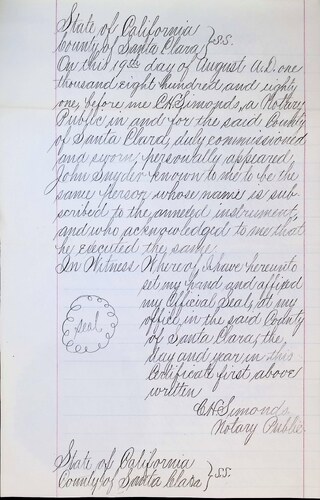 State of California
County of Santa Clara } S.S.
On this 19th day of August A.D. one
thousand eight hundred and eighty
one, before me C H Simonds, a Notary
Public in and for the said County
of Santa Clara, duly commissioned
and sworn; personally appeared,
John Snyder known to me to be the
same person whose name is sub-
scribed to the annexed instrument,
and who acknowledged to me that
he executed the same.
In Witness Whereof, I have hereunto
set my hand and affixed
my Official Seal, at my
office in the said County
of Santa Clara, the
day and year in this
Certificate first above
written
Seal
C H Simonds
Notary Public
State of California
County of Santa Clara } S.S.